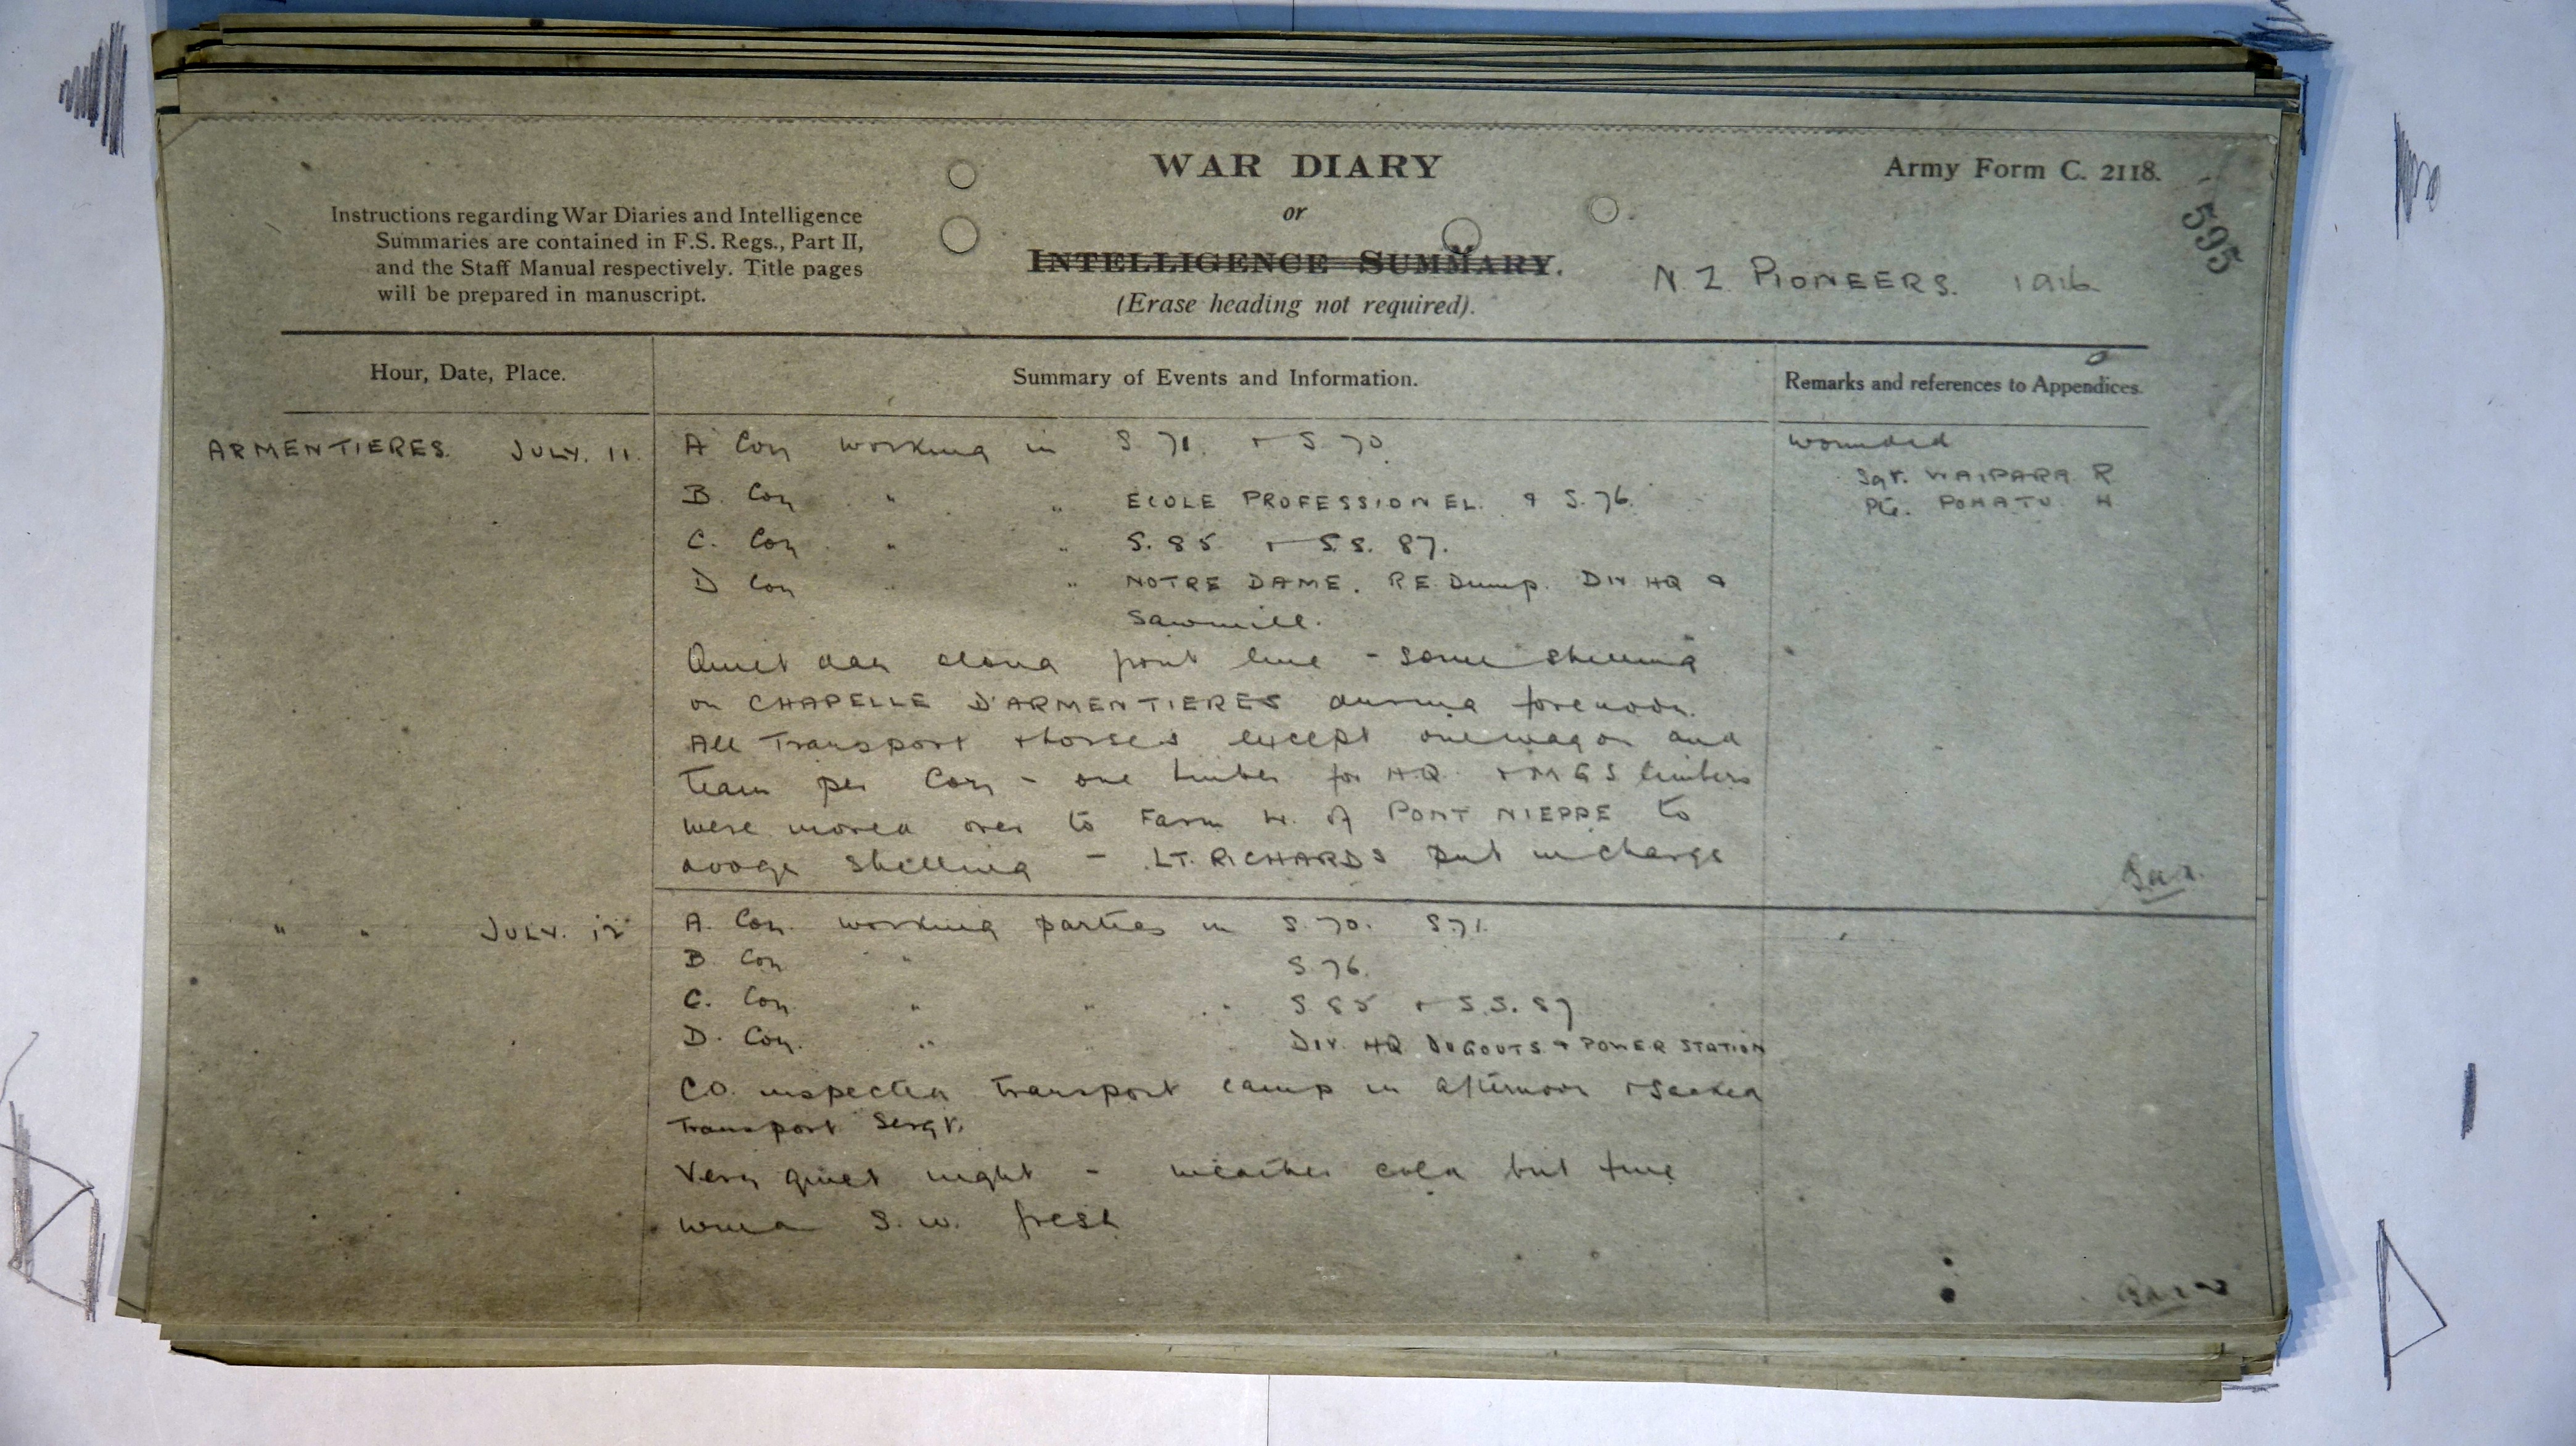 WAR DIARY
or
INTELLIGENCE SUMMARY.
(Erase heading not required).
Army Form C. 2118.
595
Instructions regarding War Diaries and Intelligence
Summaries are contained in F.S. Regs., Part II,
and the Staff Manual respectively. Title pages
will be prepared in manuscript.
N. Z. PIONEERS. 1916
Hour, Date, Place.
Summary of Events and Information.
Remarks and references to Appendices.
ARMENTIERES. JULY. 11.
A Coy working in S 71. + S 70.
B. Coy " " ECOLE PROFESSIONEL. & S. 76.
C. Coy " " S. 85 + S.S. 87.
D Coy " " NOTRE DAME. RE Dump. DIV HQ &
Sawmill.
Quiet day along front line - some shelling
on CHAPELLE D'ARMENTIERES during forenoon.
All Transport + horses except one wagon and
team per Coy - one limber for H.Q. + M G S limbers
were moved over to Farm W. of PONT NIEPPE to
dodge shelling - LT. RICHARDS put in charge
wounded
Sgt. WAIPARA R
Pte. POHATU. H
" " JULY. 12
A. Coy. working parties in S. 70. S. 71.
B Coy " S 76.
C. Coy " " " S 85 + S.S. 87
D. Coy. " DIV. HQ DUGOUTS. & POWER STATION
C.O. inspected transport camp in afternoon + sacked
Transport Sergt.
Very quiet night - weather cold but fine
wind S. W. fresh